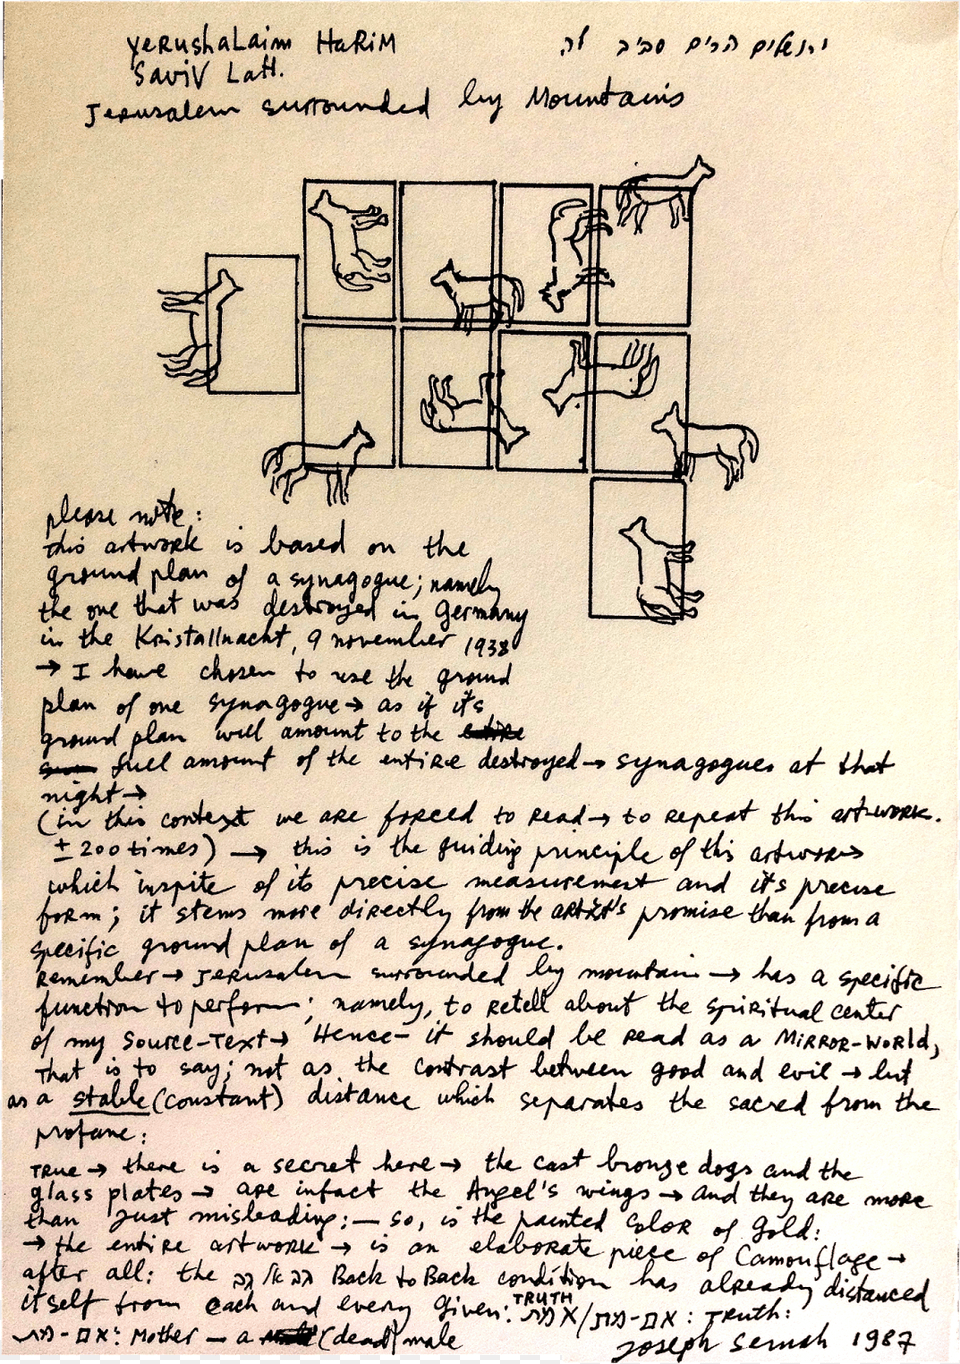 Yerushalaim Harim
Saviv Lah.
ירושלים הרים סביב לה
Jerusalem surrounded by Mountains
please note:
this artwork is based on the
ground plan of a synagogue; namely
the one that was destroyed in Germany
in the Kristallnacht, 9 november 1938
→ I have chosen to use the ground
plan of one synagogue → as if it's
ground plan will amount to the entire
full amount of the entire destroyed → synagogues at that
night →
(in this context we are forced to read → to repeat this artwork.
± 200 times) → this is the guiding principle of this artwork
which inspite of its precise measurement and it's precise
form; it stems more directly from the artist's promise than from a
specific ground plan of a synagogue.
Remember → Jerusalem surrounded by mountain → has a specific
function to perform; namely, to retell about the spiritual center
of my Source-Text → Hence – it should be read as a Mirror-World,
That is to say; not as the contrast between good and evil → but
as a stable (constant) distance which separates the sacred from the
profane:
True → there is a secret here → the cast bronze dogs and the
glass plates → are infact the Angel's wings → and they are more
than just misleading; — so, is the painted color of Gold:
→ the entire artwork → is an elaborate piece of Camouflage →
after all: the גב אל גב Back to Back condition has already distanced
itself from each and every given: TRUTH אמת/אם-מת: Truth:
אם-מת: Mother – a (dead) male
Joseph Semah 1987